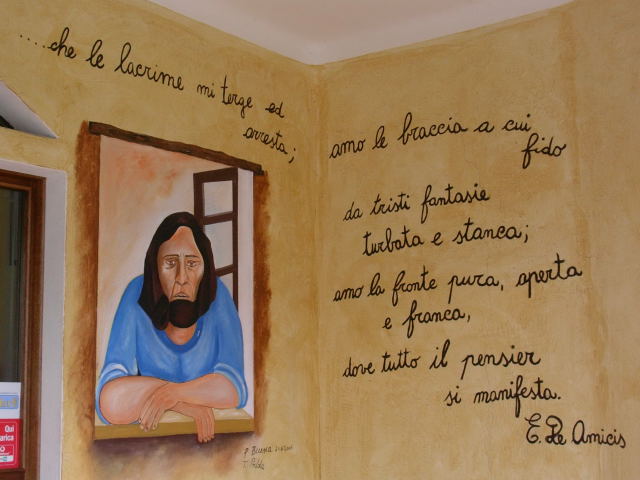 ....che le lacrime mi terge ed
arresta;
amo le braccia a cui
fido
da tristi fantasie
turbata e stanca;
amo la fronte pura, aperta
e franca,
dove tutto il pensier
si manifesta.
E. De Amicis
Qui